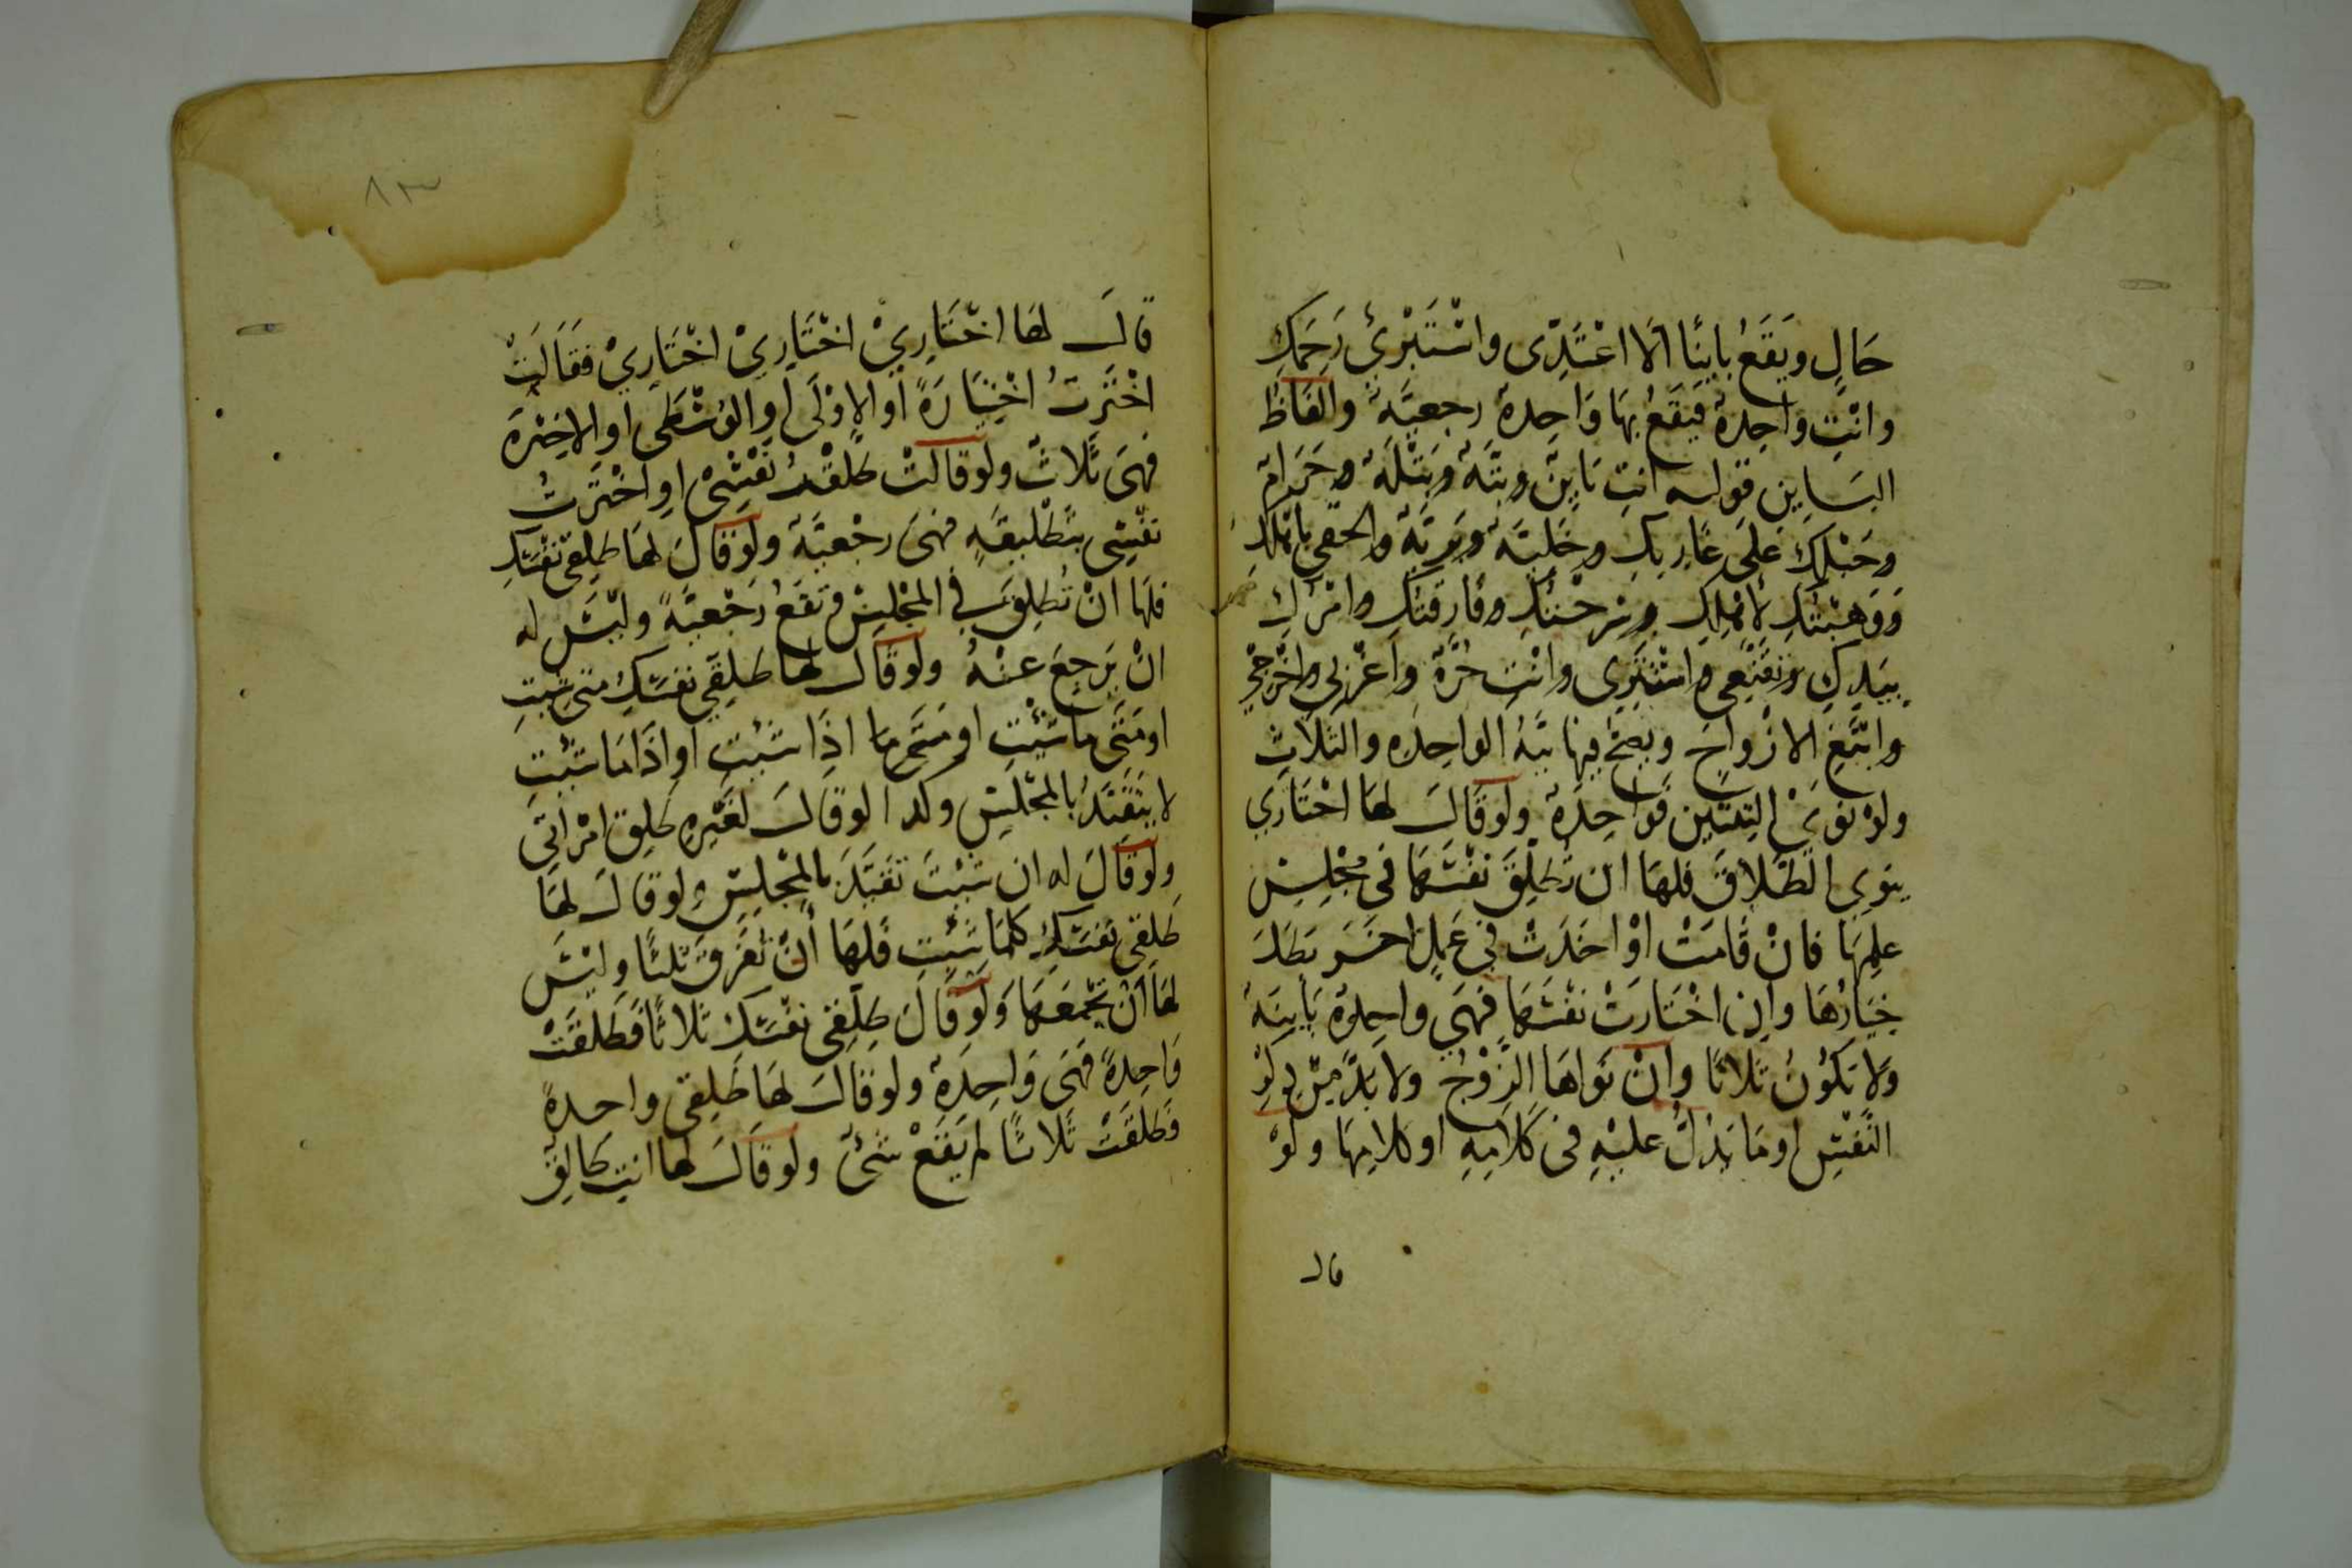 حَالٍ ويَقَعُ باينًا الا اعْتَدِّى واسْتَبْرِئِ رَحِمَكِ
وانْتِ واحِدةٌ فيَقَعُ بهَا وَاحِدةٌ رجعيّةٌ والفَاظُ
البَساينِ قوله انتِ بَاينٌ وبتّةٌ وبَتْلَةٌ وحَرَامٌ
وحَبْلكِ عَلى غَارِبكِ وخَليَّةٌ وبَريّةٌ والحقى باهْلكِ
وَوَهَبْتُكِ لأهْلِكِ وسَرحْتُكِ وفارقتُكِ وامْرُكِ
بيَدِكِ وتقَنّعِى واسْتَتِرِى وانْتِ حُرَّةٌ واعْزبى واخْرُجِى
وابْتَغِ الازْواجَ ويصحّ فيها نيّةُ الواحِدَه والثلاثِ
ولوْ نوَىْ الثِنْتَين فوَاحِدَةٌ ولوقالَ لهَا اخْتَارِي
ينوِي الطّلاقَ فلهَا ان تُطلِّقَ نفْسَهَا فى مجْلِسِ
علِمهَا فانْ قَامَتْ اوْ اخَذَتْ فى عَمَلٍ اخَرَ بَطَلَ
خيَارُهَا وان اخْتَارَتْ نفْسَهَا فهَى واحِدةٌ بَاينَةٌ
وَلا يَكوُنُ ثَلاثًا وانْ نَواهَا الزوْجُ ولا بُدّ مِنْ ذِكرِ
النّفْسِ او مَا يَدُلُّ عليْهِ فى كَلَامِهِ او كلامِهَا ولوْ
قال
٨٣
قالَ لهَا اخْتَارِىْ اخْتَارِىْ اخْتَارِىْ فقَالَتْ
اخْتَرْتُ اخْتِيَارَةً او الاوْلَى او الوُسْطَى او الاخِيْرَةَ
فهىَ ثَلاثٌ ولوقالتْ طَلّقْتُ نفْسِىْ او اخْتَرْتُ
نفْسِى بتَطْليقَةٍ فهىَ رجْعيَّةٌ ولوْقَالَ لهَا طلِقى نفْسَكِ
فلهَا انْ تُطلِّقَ فى المجْلِسْ وتقَعُ رَجْعيَّةً وليْسَ له
انْ يَرجعَ عنْهُ ولوقال لها طَلِّقِي نفسَكِ متَى شِيتِ
اومَتَى مَا شيْتِ او مَتَى ما اذَا شئتِ او اذَا مَا شيْتِ
لا يتَقَيَدُ بالمجْلسِ وكدا لوقالَ لغَيْرِهِ طلِق امْراتِى
ولوقَالَ له ان شيْتَ تقَيَّدَ بالمجْلِسِ ولوقالَ لهَا
طَلِقى نفسَكِ كلمَا شئتِ فلهَا أَنْ تُفَرِقَ ثلثًا وليْسَ
لهَا انْ تجْمَعَهَا وَلوقَالَ طلِقِى نفْسَكِ ثَلاثًا فَطَلّقَتْ
وَاحِدةً فهىَ وَاحِدَةٌ ولوقالَ لهَا طَلِقى واحدةً
فطَلّقَتْ ثَلاثًا لم يَقَعْ شئٌ ولوقَالَ لها انتِ طَالِقٌ